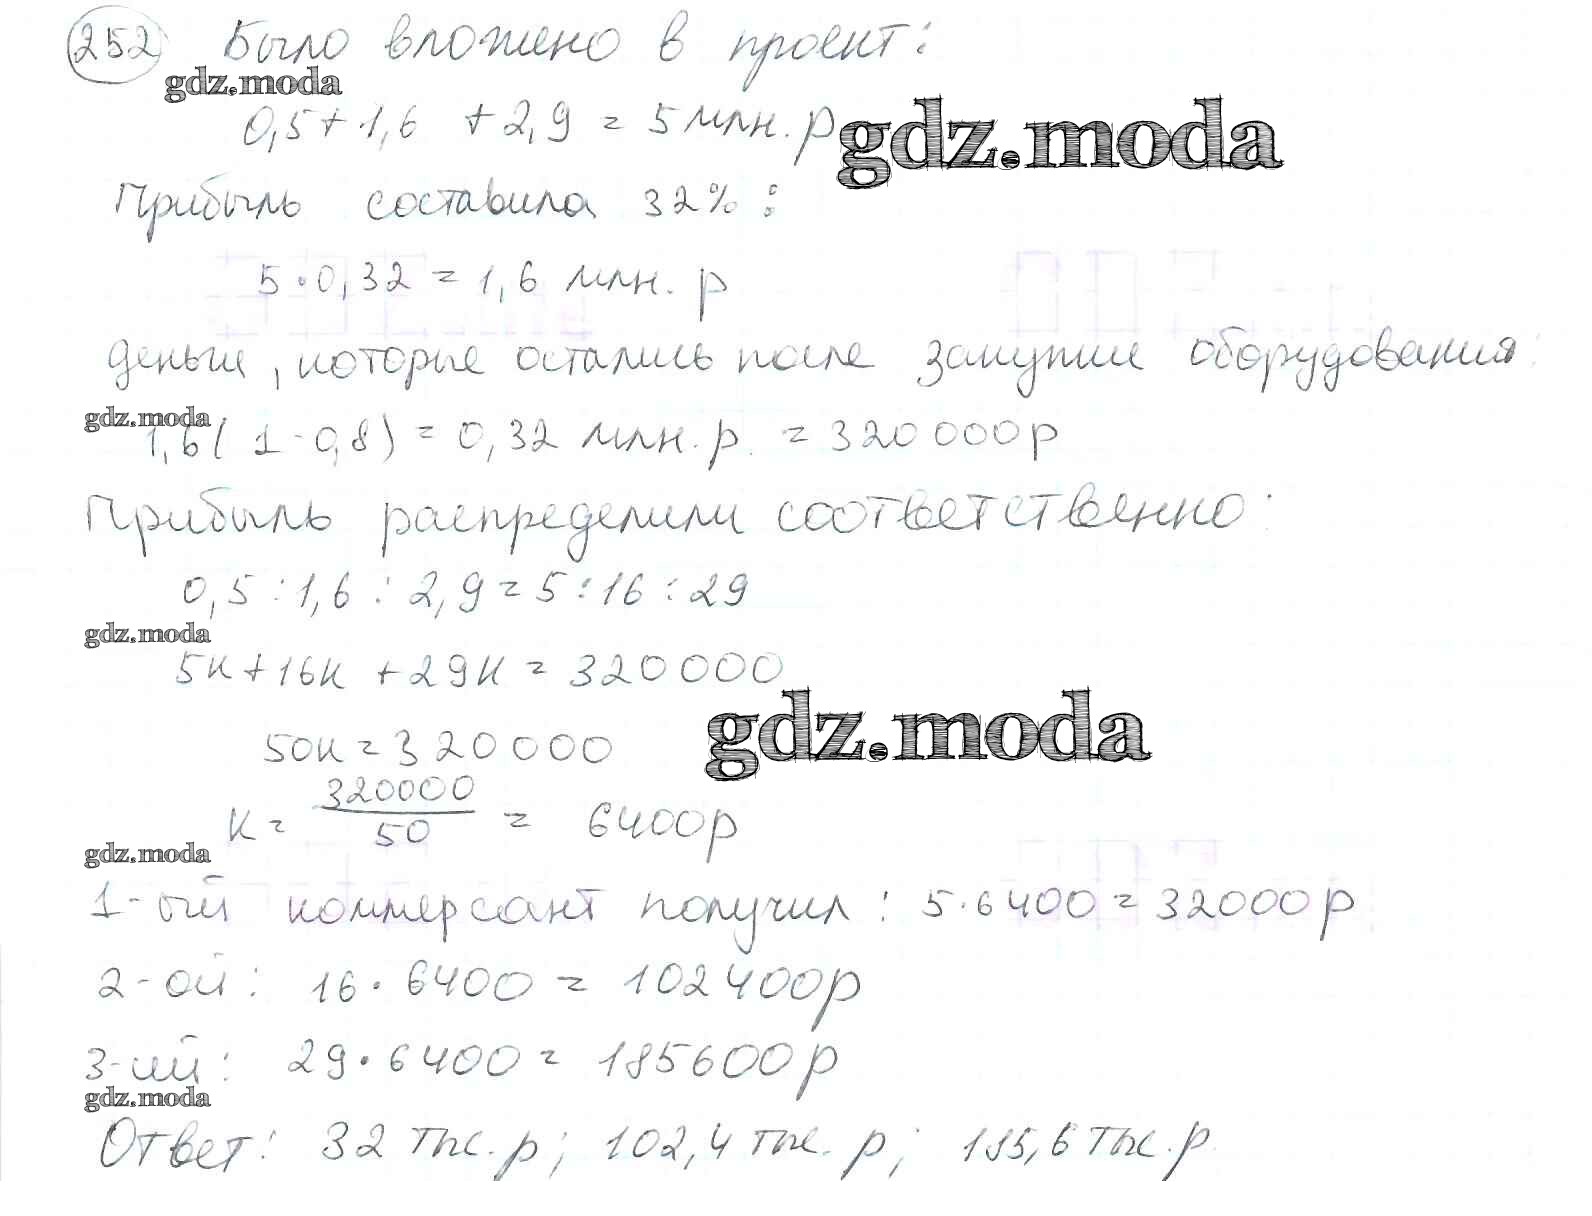 252 Было вложено в проект:
gdz.moda
0,5+1,6 +2,9 = 5 млн. р
gdz.moda
Прибыль составила 32%:
5·0,32 = 1,6 млн. р
деньги, которые остались после закупки оборудования:
gdz.moda
1,6(1-0,8) = 0,32 млн. р. = 320 000р
Прибыль распределили соответственно:
0,5:1,6:2,9=5:16:29
gdz.moda
5к+16к +29к = 320 000
gdz.moda
50к=320 000
к= 320000/50 = 6400р
gdz.moda
1-ый коммерсант получил: 5·6400=32000р
2-ой: 16·6400 = 102400р
3-ий: 29·6400= 185600р
gdz.moda
Ответ: 32 тыс. р; 102,4 тыс. р; 185,6 тыс. р.